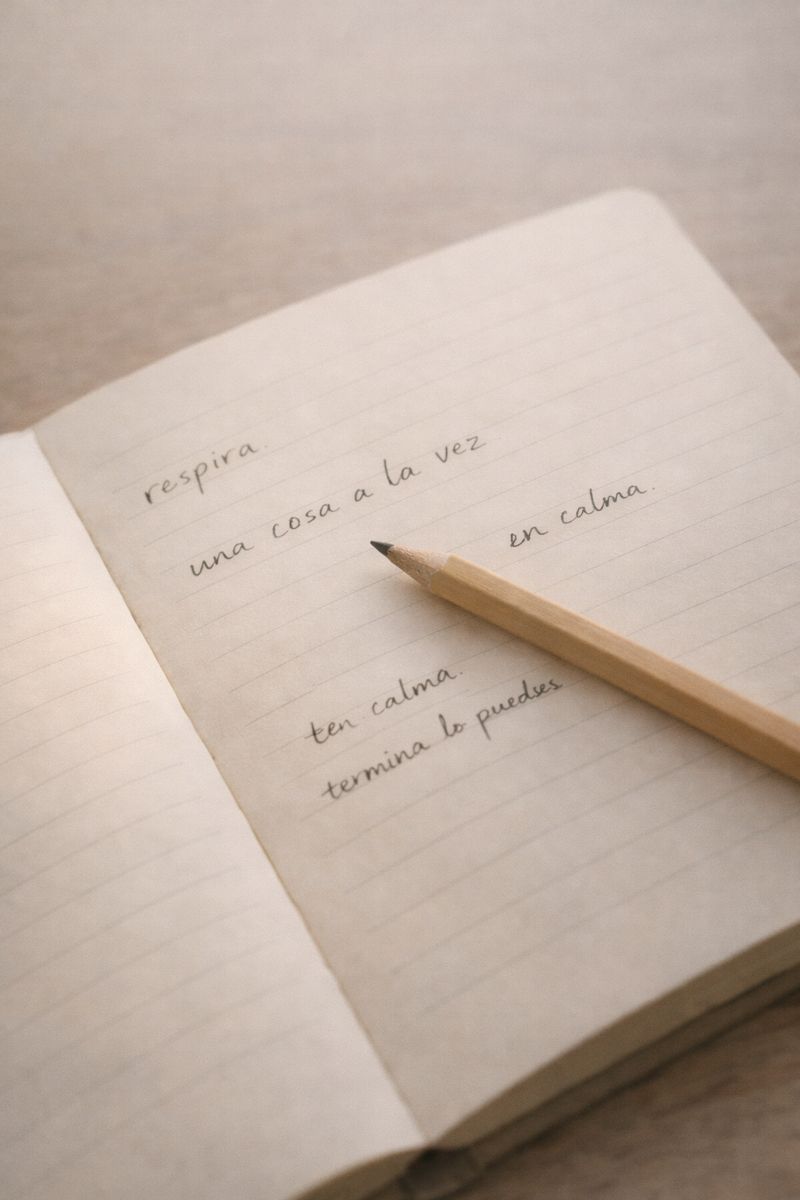 respira.
una cosa a la vez
en calma.
ten calma.
termina lo puedses